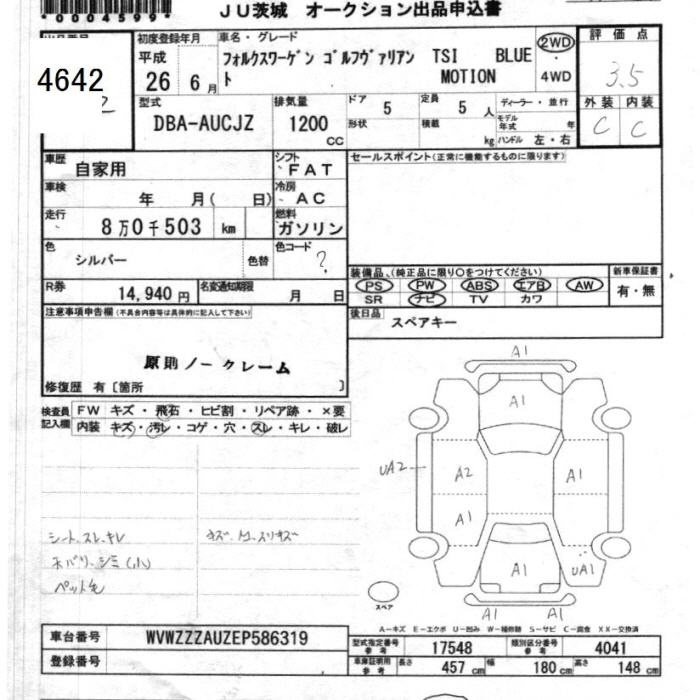 *0004599*
JU茨城 オークション出品申込書
4642
初度登録年月
平成
26 6月
車名・グレード
フォルクスワーゲン ゴルフヴァリアン TSI BLUE
ト MOTION
2WD
・
4WD
評価点
3.5
外装 内装
C C
型式
DBA-AUCJZ
排気量
1200
cc
ドア 5
形状
定員 5 人
積載 kg
ディーラー・並行
モデル年式 年
ハンドル 左・右
車歴
自家用
シフト
FAT
車検
年 月( 日)
冷房
AC
走行
8万0千503 km
燃料
ガソリン
色
シルバー
色替
色コード
?
R券
14,940 円
名変通知期限
月 日
セールスポイント(正常に機能するものに限ります)
装備品、(純正品に限り○をつけてください)
PS PW ABS エアB AW
SR ナビ TV カワ
新車保証書
有・無
後日品
スペアキー
注意事項申告欄(不具合内容等は具体的に記入して下さい)
原則ノークレーム
修復歴 有〔箇所 〕
検査員
記入欄
FW キズ・飛石・ヒビ割・リペア跡・×要
内装 キズ・汚レ・コゲ・穴・スレ・キレ・破レ
シート、スレ、キレ
ペット毛
A1
A1
UA2
A2
A1
A1
A1
UA1
A1 A1
スペア
A-キズ E-エクボ U-凹み W-補修跡 S-サビ C-腐食 XX-交換済
車台番号
WVWZZZAUZEP586319
登録番号
型式指定番号
参考
17548
類別区分番号
参考
4041
車庫証明用
参考
長さ 457 cm 幅 180 cm 高さ 148 cm